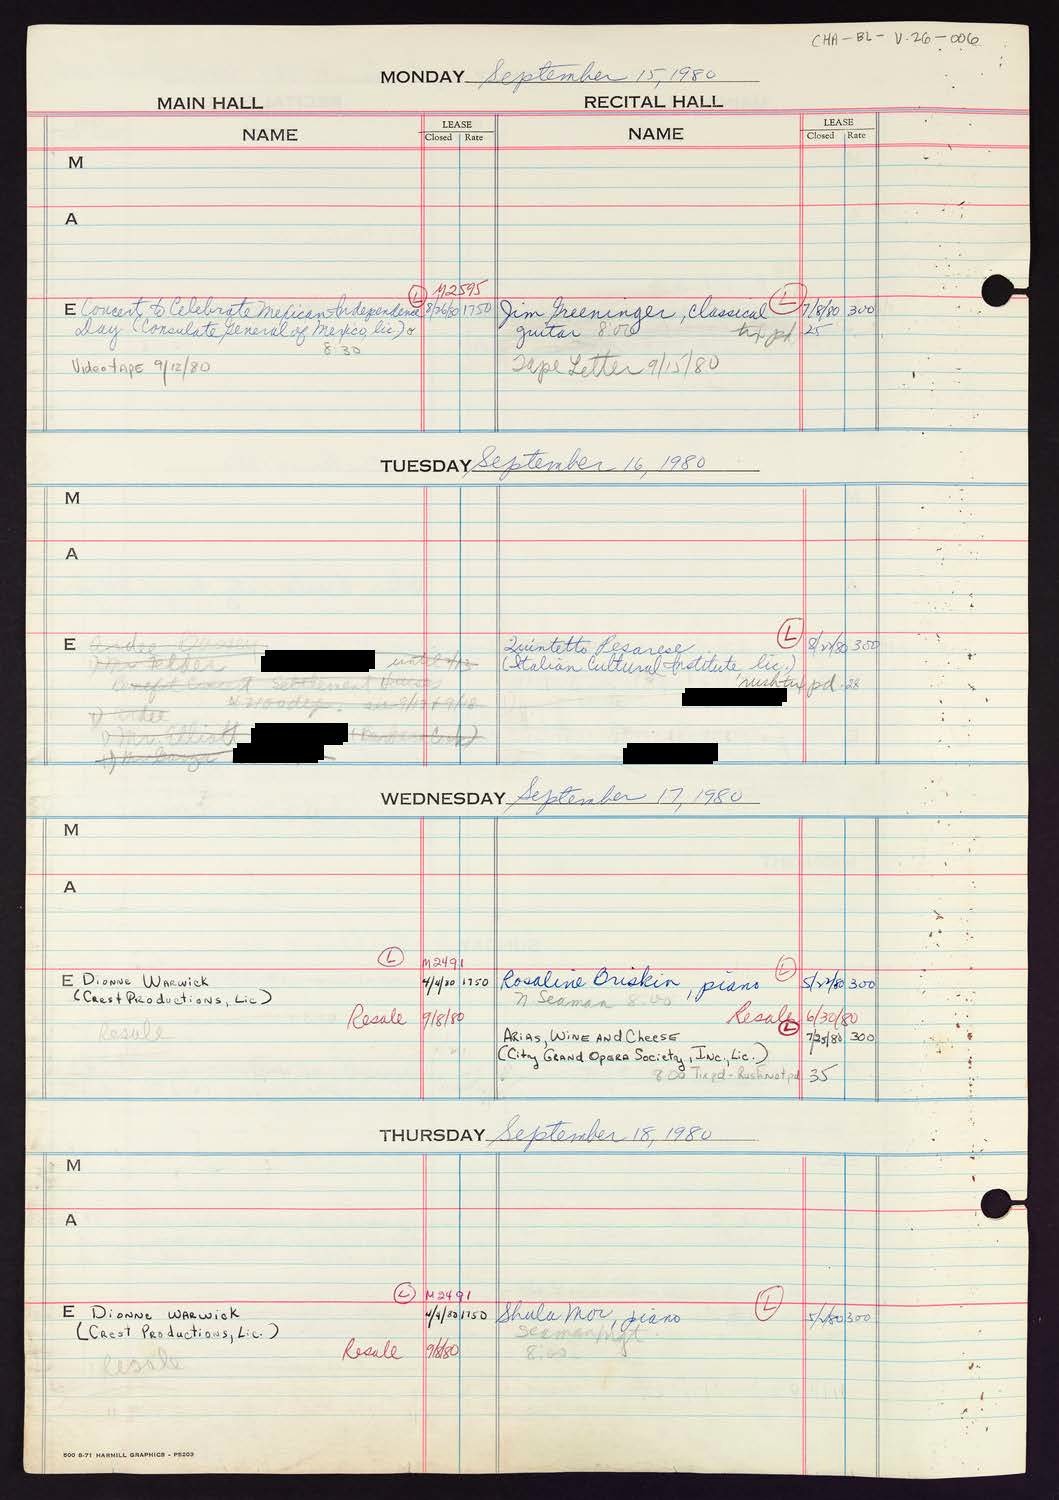 CHA-BL-V.26-006
MONDAY September 15, 1980
MAIN HALL
RECITAL HALL
NAME
LEASE
Closed Rate
NAME
LEASE
Closed Rate
M
A
L M2595
E Concert to Celebrate Mexican Independence 8/26/80 1750
Day (Consulate General of Mexico, lic.)
8:30
Videotape 9/12/80
Jim Greeninger, classical L 7/8/80 300
guitar 8:00 tix pd. 25
Tape Letter 9/15/80
TUESDAY September 16, 1980
M
A
E
Mr. Felder until
Benefit Concert Settlement House
Mr. Elliott
L
Quintetto Pesarese 8/22/80 300
(Italian Cultural Institute, lic.)
rush tix pd. 28
WEDNESDAY September 17, 1980
M
A
L M2491
E Dionne Warwick 4/4/80 1750
(Crest Productions, Lic)
Resale 9/8/80
Resale
L
Rosaline Briskin, piano 5/22/80 300
Seaman 8:00
Resale 6/30/80
L
Arias, Wine and Cheese 7/25/80 300
(City Grand Opera Society, Inc., Lic.)
8:00 Tix pd - Rush not pd 35
THURSDAY September 18, 1980
M
A
L M2491
E Dionne Warwick 4/4/80 1750
(Crest Productions, Lic.)
Resale 9/8/80
Resale
L
Shula Mor, piano 300
Seaman Mgt
8:00
500 8-71 HARNILL GRAPHICS - P5203